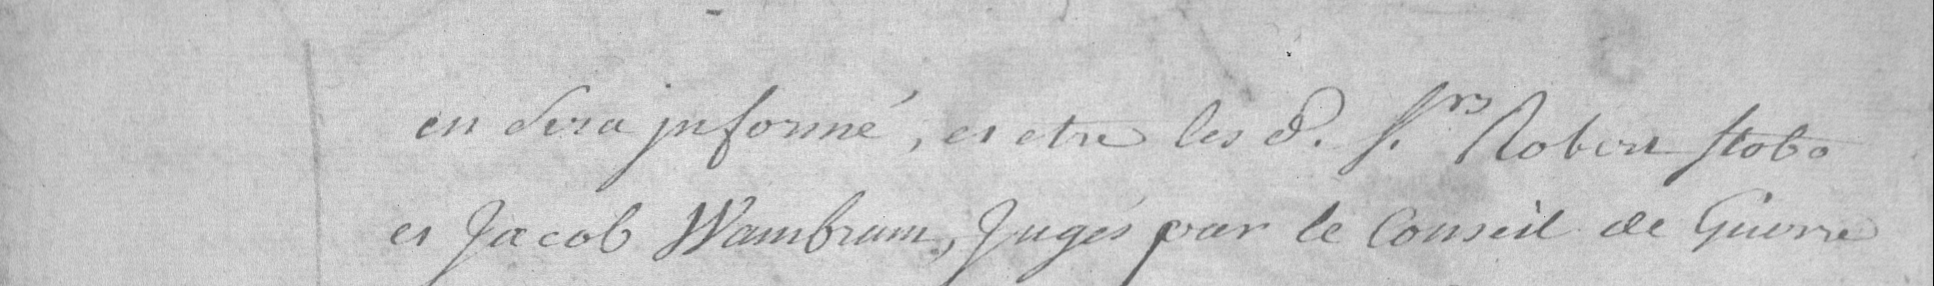 en sera jnformé, et etre les d. S.rs Robert Stobo
et Jacob Wambram, Jugés par le Conseil de Guerre